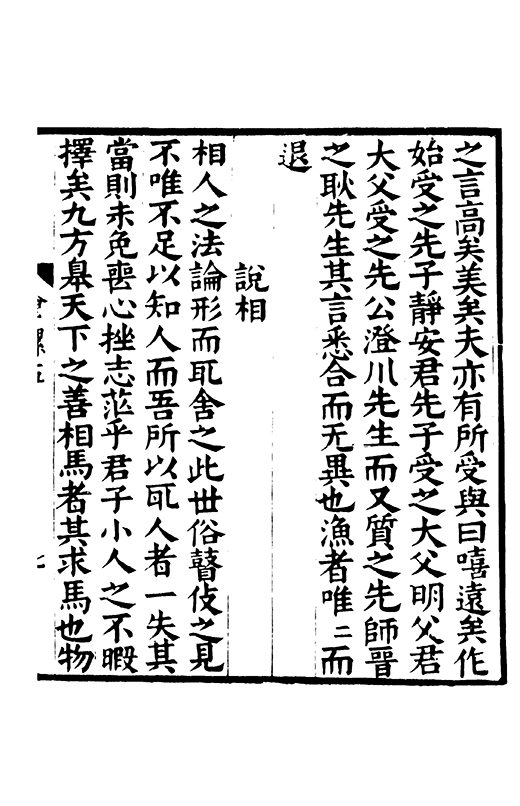 之言高矣美矣夫亦有所受與曰嘻遠矣作
始受之先子靜安君先子受之大父明父君
大父受之先公澄川先生而又質之先師晉
之耿先生其言悉合而无異也漁者唯二而
退
說相
相人之法論形而㪅舍之此世俗瞽伎之見
不唯不足以知人而吾所以㪅人者一失其
當則未免喪心挫志茫乎君子小人之不暇
擇矣九方皋天下之善相馬者其求馬也物
七